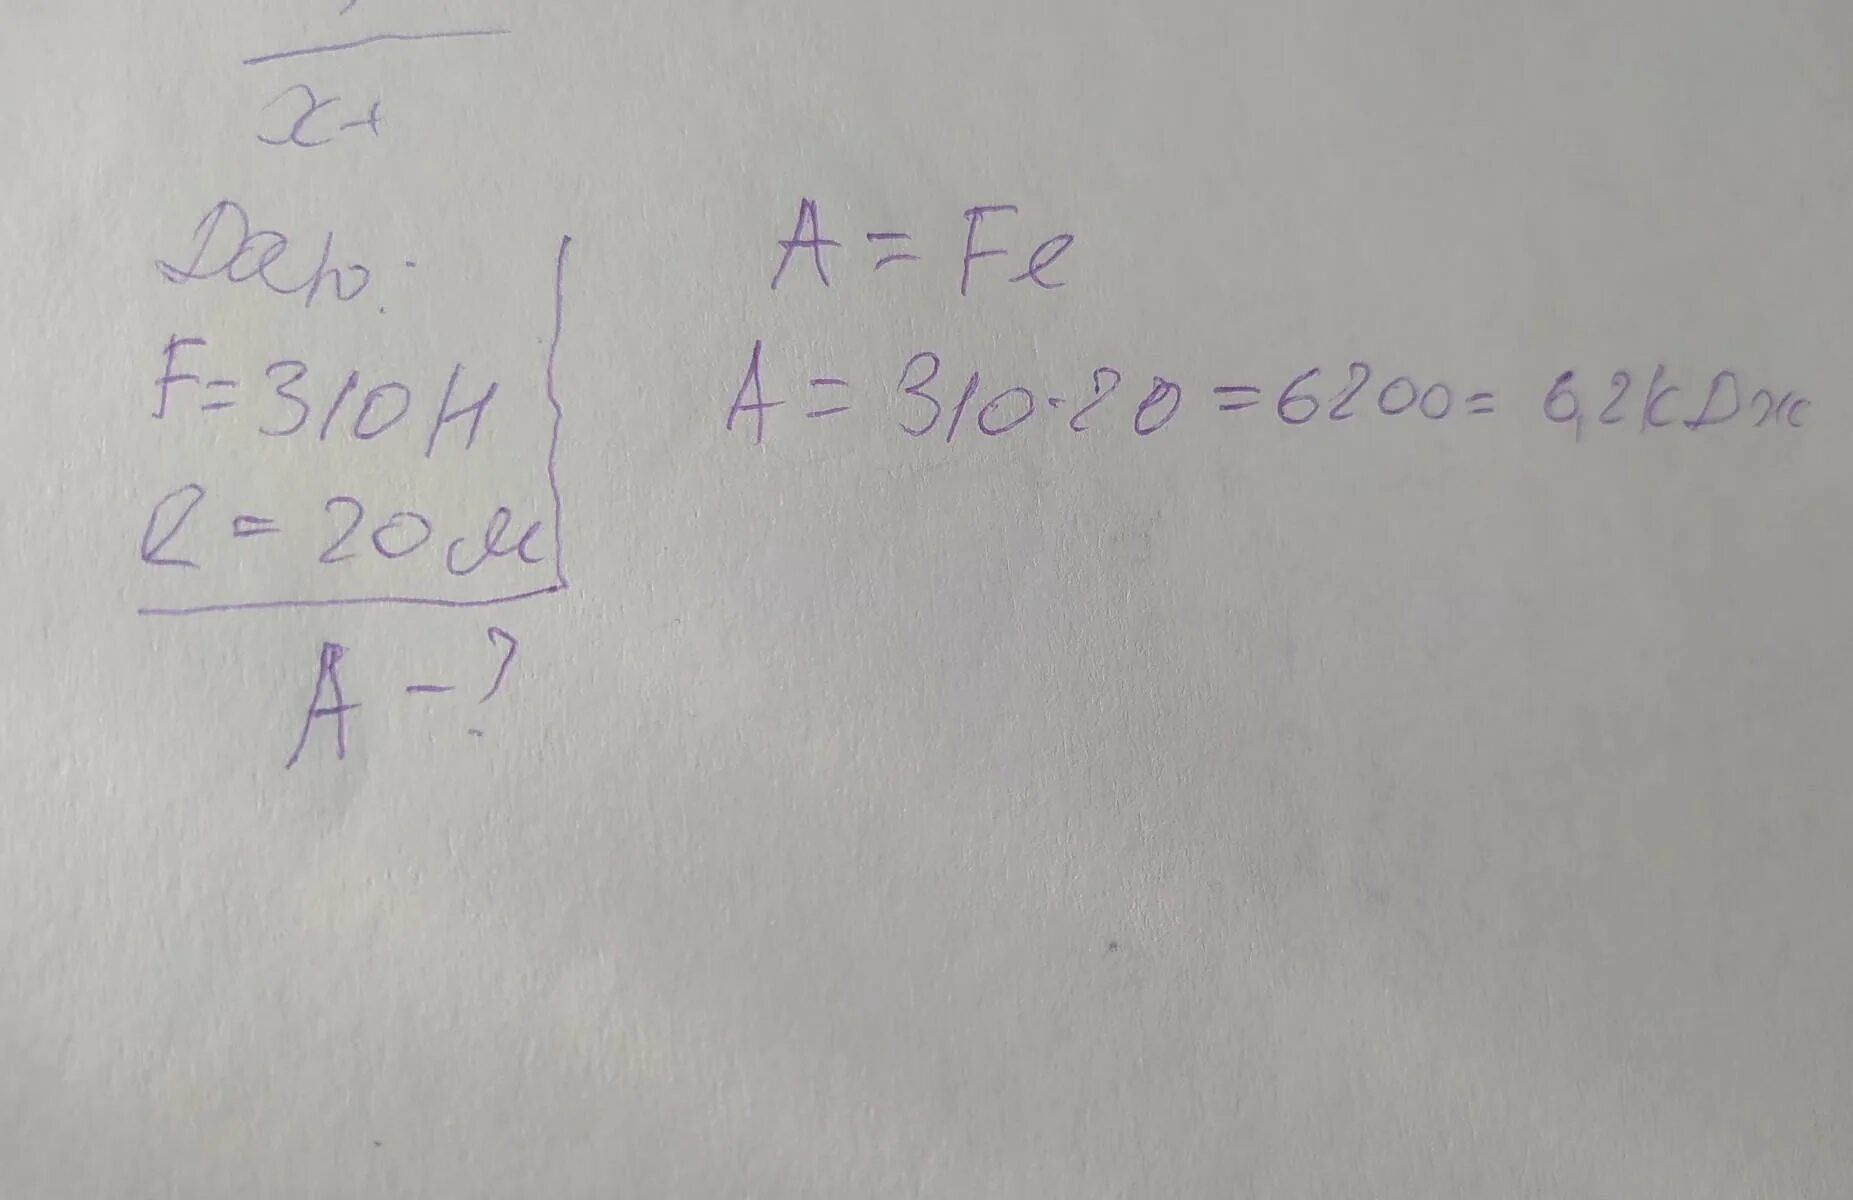 x+
Дар:
A = Fl
F = 310 Н
A = 310·20 = 6200 = 6,2 кДж
l = 20 м
A - ?